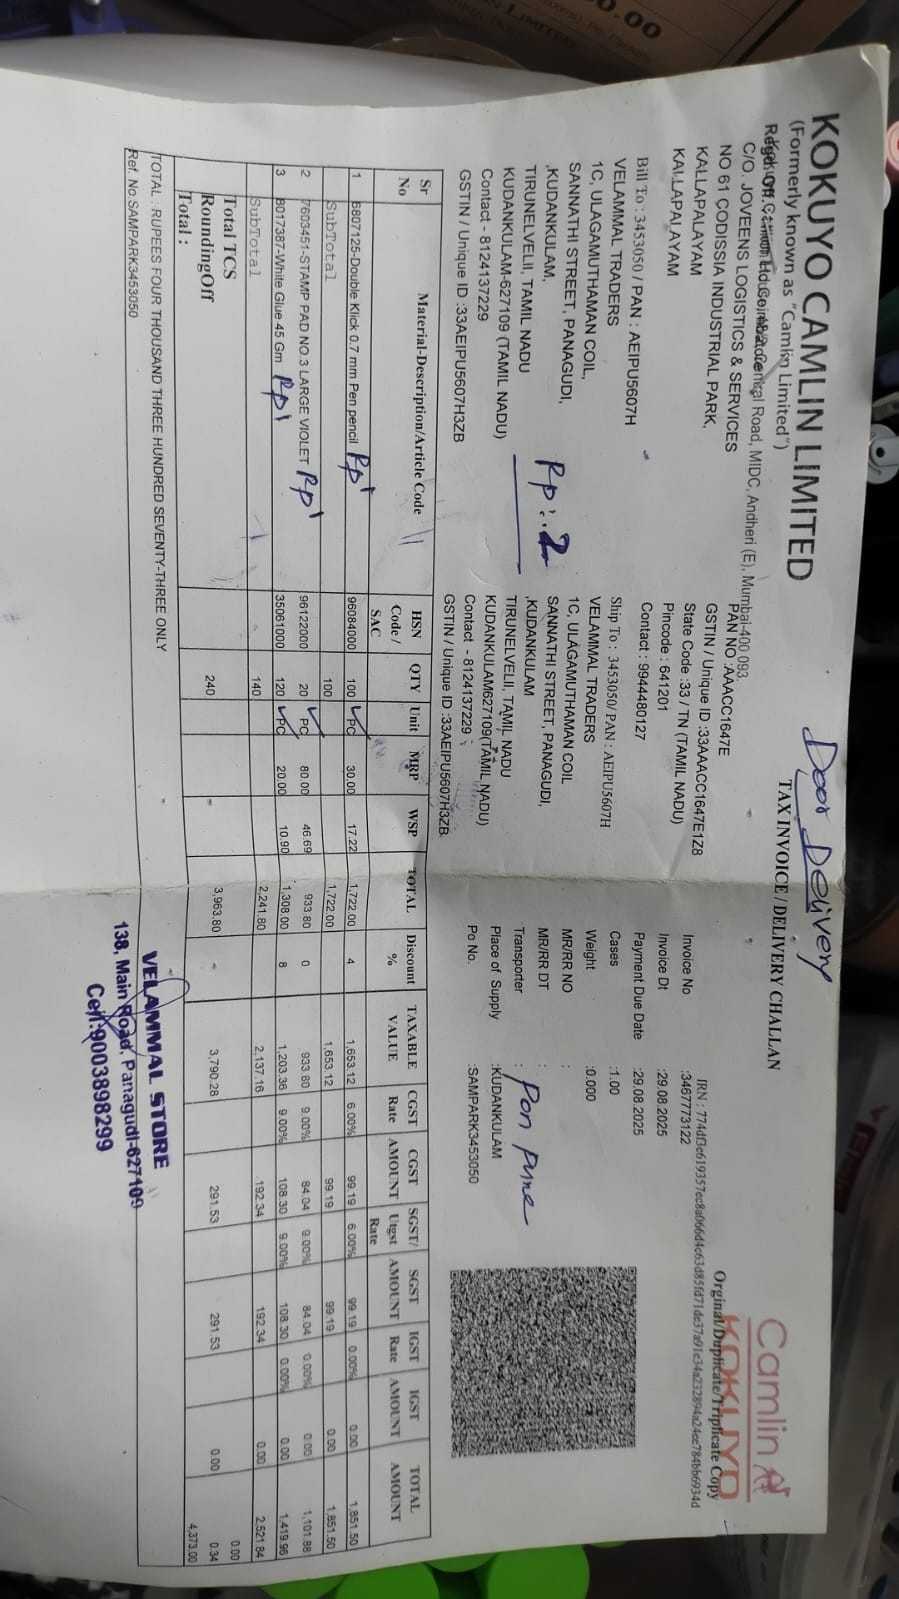 0.00
Door Delivery
KOKUYO CAMLIN LIMITED
(Formerly known as "Camlin Limited")
TAX INVOICE / DELIVERY CHALLAN
Camlin
KOKUYO
Orginal/Duplicate/Triplicate Copy
C/O. JOVEENS LOGISTICS & SERVICES
NO 61 CODISSIA INDUSTRIAL PARK,
KALLAPALAYAM
KALLAPALAYAM
PAN NO :AAACC1647E
GSTIN / Unique ID :33AAACC1647E1Z8
State Code :33 / TN (TAMIL NADU)
Pincode : 641201
Contact : 9944480127
Invoice No :3467773122
Invoice Dt :29.08.2025
Payment Due Date :29.08.2025
Cases :1.00
Weight :0.000
MR/RR NO :
MR/RR DT :
Transporter : Pon Pure
Place of Supply :KUDANKULAM
Po No. :SAMPARK3453050
Bill To : 3453050 / PAN : AEIPU5607H
VELAMMAL TRADERS
1C, ULAGAMUTHAMAN COIL,
SANNATHI STREET, PANAGUDI,
,KUDANKULAM,
TIRUNELVELII, TAMIL NADU
KUDANKULAM-627109 (TAMIL NADU)
Contact - 8124137229
GSTIN / Unique ID :33AEIPU5607H3ZB
Ship To : 3453050/ PAN : AEIPU5607H
VELAMMAL TRADERS
1C, ULAGAMUTHAMAN COIL
SANNATHI STREET, PANAGUDI,
,KUDANKULAM
TIRUNELVELII, TAMIL NADU
KUDANKULAM627109(TAMIL NADU)
Contact - 8124137229
GSTIN / Unique ID :33AEIPU5607H3ZB
Sr No Material-Description/Article Code HSN Code / SAC QTY Unit MRP WSP TOTAL Discount % TAXABLE VALUE CGST Rate CGST AMOUNT SGST/ Utgst Rate SGST AMOUNT IGST Rate IGST AMOUNT TOTAL AMOUNT
1 6807125-Double Klick 0.7 mm Pen pencil 96084000 100 PC 30.00 17.22 1,722.00 4 1,653.12 6.00% 99.19 6.00% 99.19 0.00% 0.00 1,851.50
SubTotal 100 1,722.00 1,653.12 99.19 99.19 0.00 1,851.50
2 7603451-STAMP PAD NO.3 LARGE VIOLET 96122000 20 PC 80.00 46.69 933.80 0 933.80 9.00% 84.04 9.00% 84.04 0.00% 0.00 1,101.88
3 8017387-White Glue 45 Gm 35061000 120 PC 20.00 10.90 1,308.00 8 1,203.36 9.00% 108.30 9.00% 108.30 0.00% 0.00 1,419.96
SubTotal 140 2,241.80 2,137.16 192.34 192.34 0.00 2,521.84
Total TCS 0.00
RoundingOff 240 3,963.80 3,790.28 291.53 291.53 0.00 0.34
Total : 4,373.00
TOTAL : RUPEES FOUR THOUSAND THREE HUNDRED SEVENTY-THREE ONLY
Ref. No.SAMPARK3453050
VELAMMAL STORE
138, Main Road, Panagudi-627109
Cell:9003898299